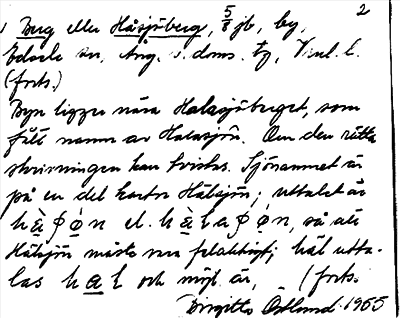 2
Berg eller Håsjöberg, 5/8 jb, by,
Edsele sn, Ång. s. doms. tg, Vnl. l.
(forts.)
Byn ligger nära Halasjöberget, som
fått namn av Halasjön. Om den rätta
skrivningen kan tvistas. Sjönamnet är
på en del kartor Hålsjön; uttalet är
el. så att
Hålsjön måste vara felaktigt; hål utta-
las och möjl. är, (forts.
Birgitta Östlund. 1965